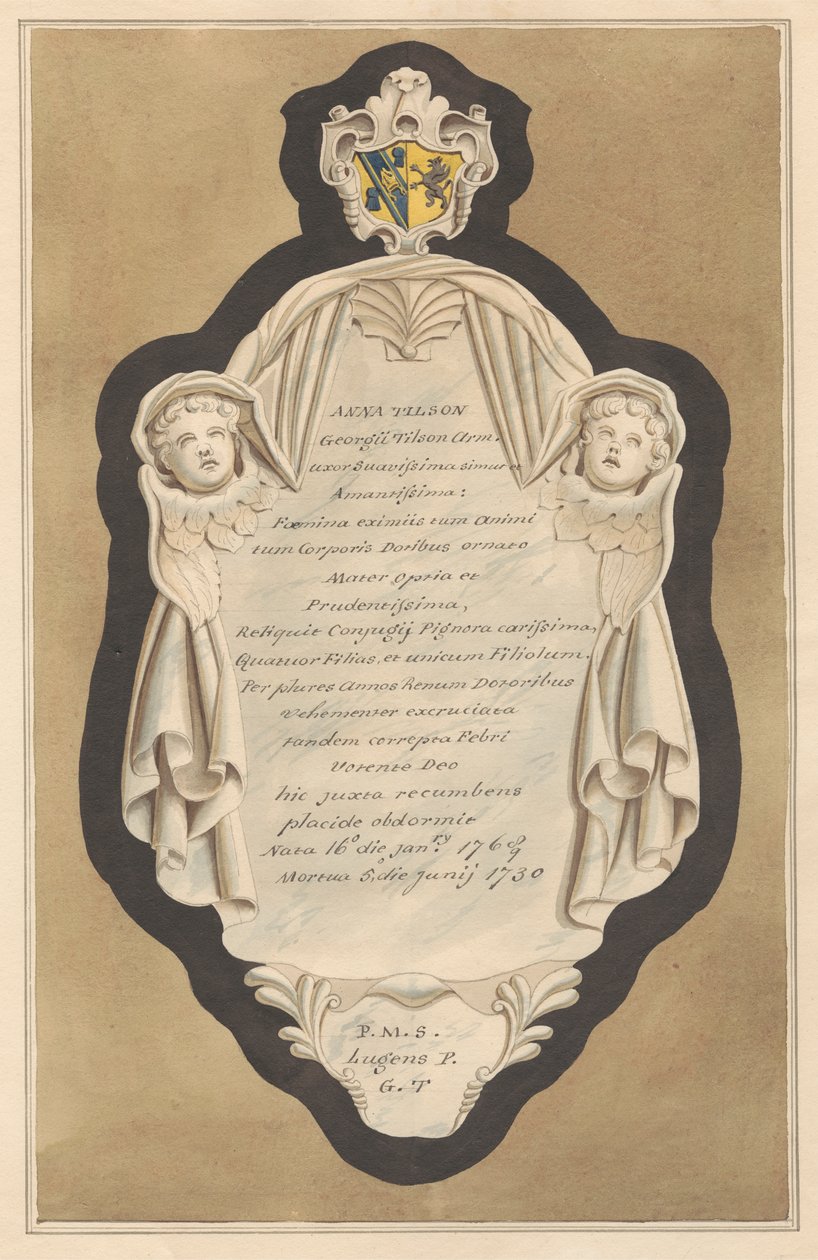 ANNA TILSON
Georgii Tilson Arm.
uxor Suavissima simul et
Amantissima:
Fœmina eximiis tum Animi
tum Corporis Dotibus ornato
Mater Optia et
Prudentissima,
Reliquit Conjugij Pignora carissima,
Quatuor Filias, et unicum Filiolum.
Per plures Annos Renum Doloribus
vehementer excruciata
tandem correpta Febri
Volente Deo
hic juxta recumbens
placide obdormit
Nata 16º die Jan.ry 176 8/9
Mortua 5º die Junij 1730
P.M.S.
Lugens P.
G.T